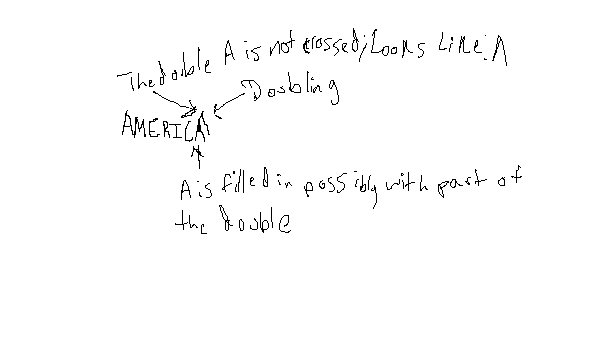 The double A is not crossed, Looks Like: Λ
Doubling
AMERICA
A is filled in possibly with part of
the double